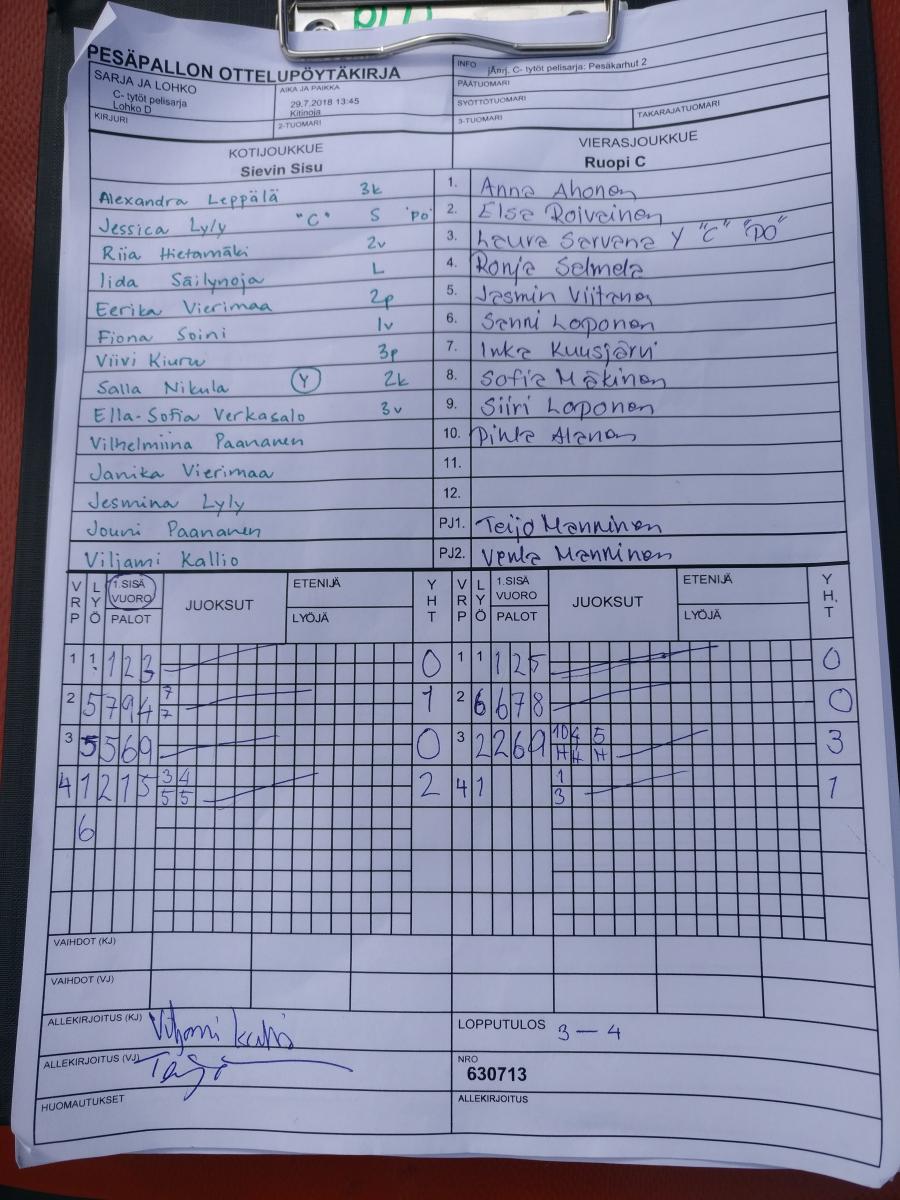 PESÄPALLON OTTELUPÖYTÄKIRJA
SARJA JA LOHKO
C- tytöt pelisarja
Lohko D
AIKA JA PAIKKA
29.7.2018 13:45
Kitinoja
KIRJURI
2-TUOMARI
INFO jÄnrj. C- tytöt pelisarja: Pesäkarhut 2
PÄÄTUOMARI
SYÖTTÖTUOMARI
3-TUOMARI TAKARAJATUOMARI
KOTIJOUKKUE VIERASJOUKKUE
Sievin Sisu Ruopi C
Alexandra Leppälä 3k 1. Anna Ahonen
Jessica Lyly "C" S "PO" 2. Elsa Roivainen
Riia Hietamäki 2v 3. Laura Sarvana Y "C" "PO"
Iida Säilynoja L 4. Ronja Selmela
Eerika Vierimaa 2p 5. Jasmin Viitanen
Fiona Soini 1v 6. Sanni Loponen
Viivi Kiuru 3p 7. Inka Kuusjärvi
Salla Nikula Y 2k 8. Sofia Mäkinen
Ella-Sofia Verkasalo 3v 9. Siiri Loponen
Vilhelmiina Paananen 10. Pihla Alanen
Janika Vierimaa 11.
Jesmina Lyly 12.
Jouni Paananen PJ1. Teijo Manninen
Viljami Kallio PJ2. Venla Manninen
VRP LYÖ 1.SISÄ VUORO PALOT JUOKSUT ETENIJÄ LYÖJÄ YHT VRP LYÖ 1.SISÄ VUORO PALOT JUOKSUT ETENIJÄ LYÖJÄ YHT.
1 1 1 2 3 0 1 1 1 2 5 0
2 5 7 9 4 7 7 1 2 6 6 7 8 0
3 5 5 6 9 0 3 2 2 6 9 10 H 4 H 5 H 3
4 1 2 1 5 3 5 4 5 2 4 1 1 3 1
6
VAIHDOT (KJ)
VAIHDOT (VJ)
ALLEKIRJOITUS (KJ) Viljami Kallio
LOPPUTULOS 3 – 4
ALLEKIRJOITUS (VJ)
NRO
630713
HUOMAUTUKSET
ALLEKIRJOITUS